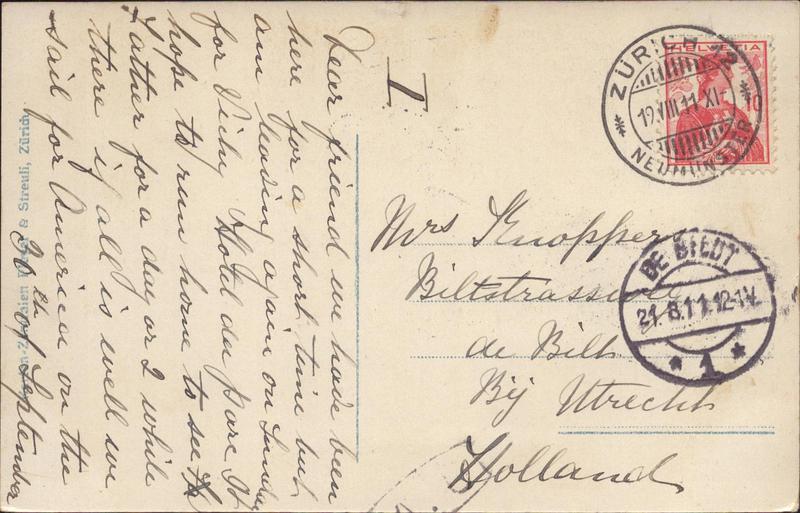 Dear friend we have been
here for a short time but
am leaving again on Sunday
for Vichy Hotel du Parc I
hope to run home to see
Father for a day or 2 while
there if all is well we
sail for America on the
30th of September
I
Mrs Knoppers
Biltstrasse
de Bilt
Bij Utrecht
Holland
HELVETIA
ZÜRICH 12
19.VIII.11.XI-
NEUMÜNSTER
DE BILDT
21.8.11.12-1V.
1
& Streuli, Zürich